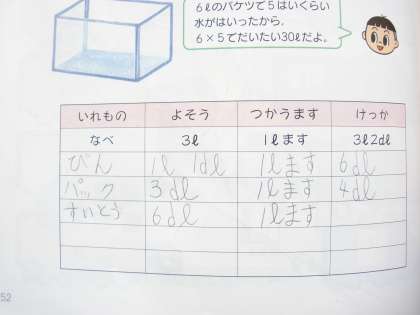 6ℓのバケツで5はいくらい
水がはいったから、
6×5でだいたい30ℓだよ。
いれもの よそう つかうます けっか
なべ 3ℓ 1ℓます 3ℓ2dℓ
びん 1ℓ 1dℓ 1ℓます 6dℓ
パック 3dℓ 1ℓます 4dℓ
すいとう 6dℓ 1ℓます
52